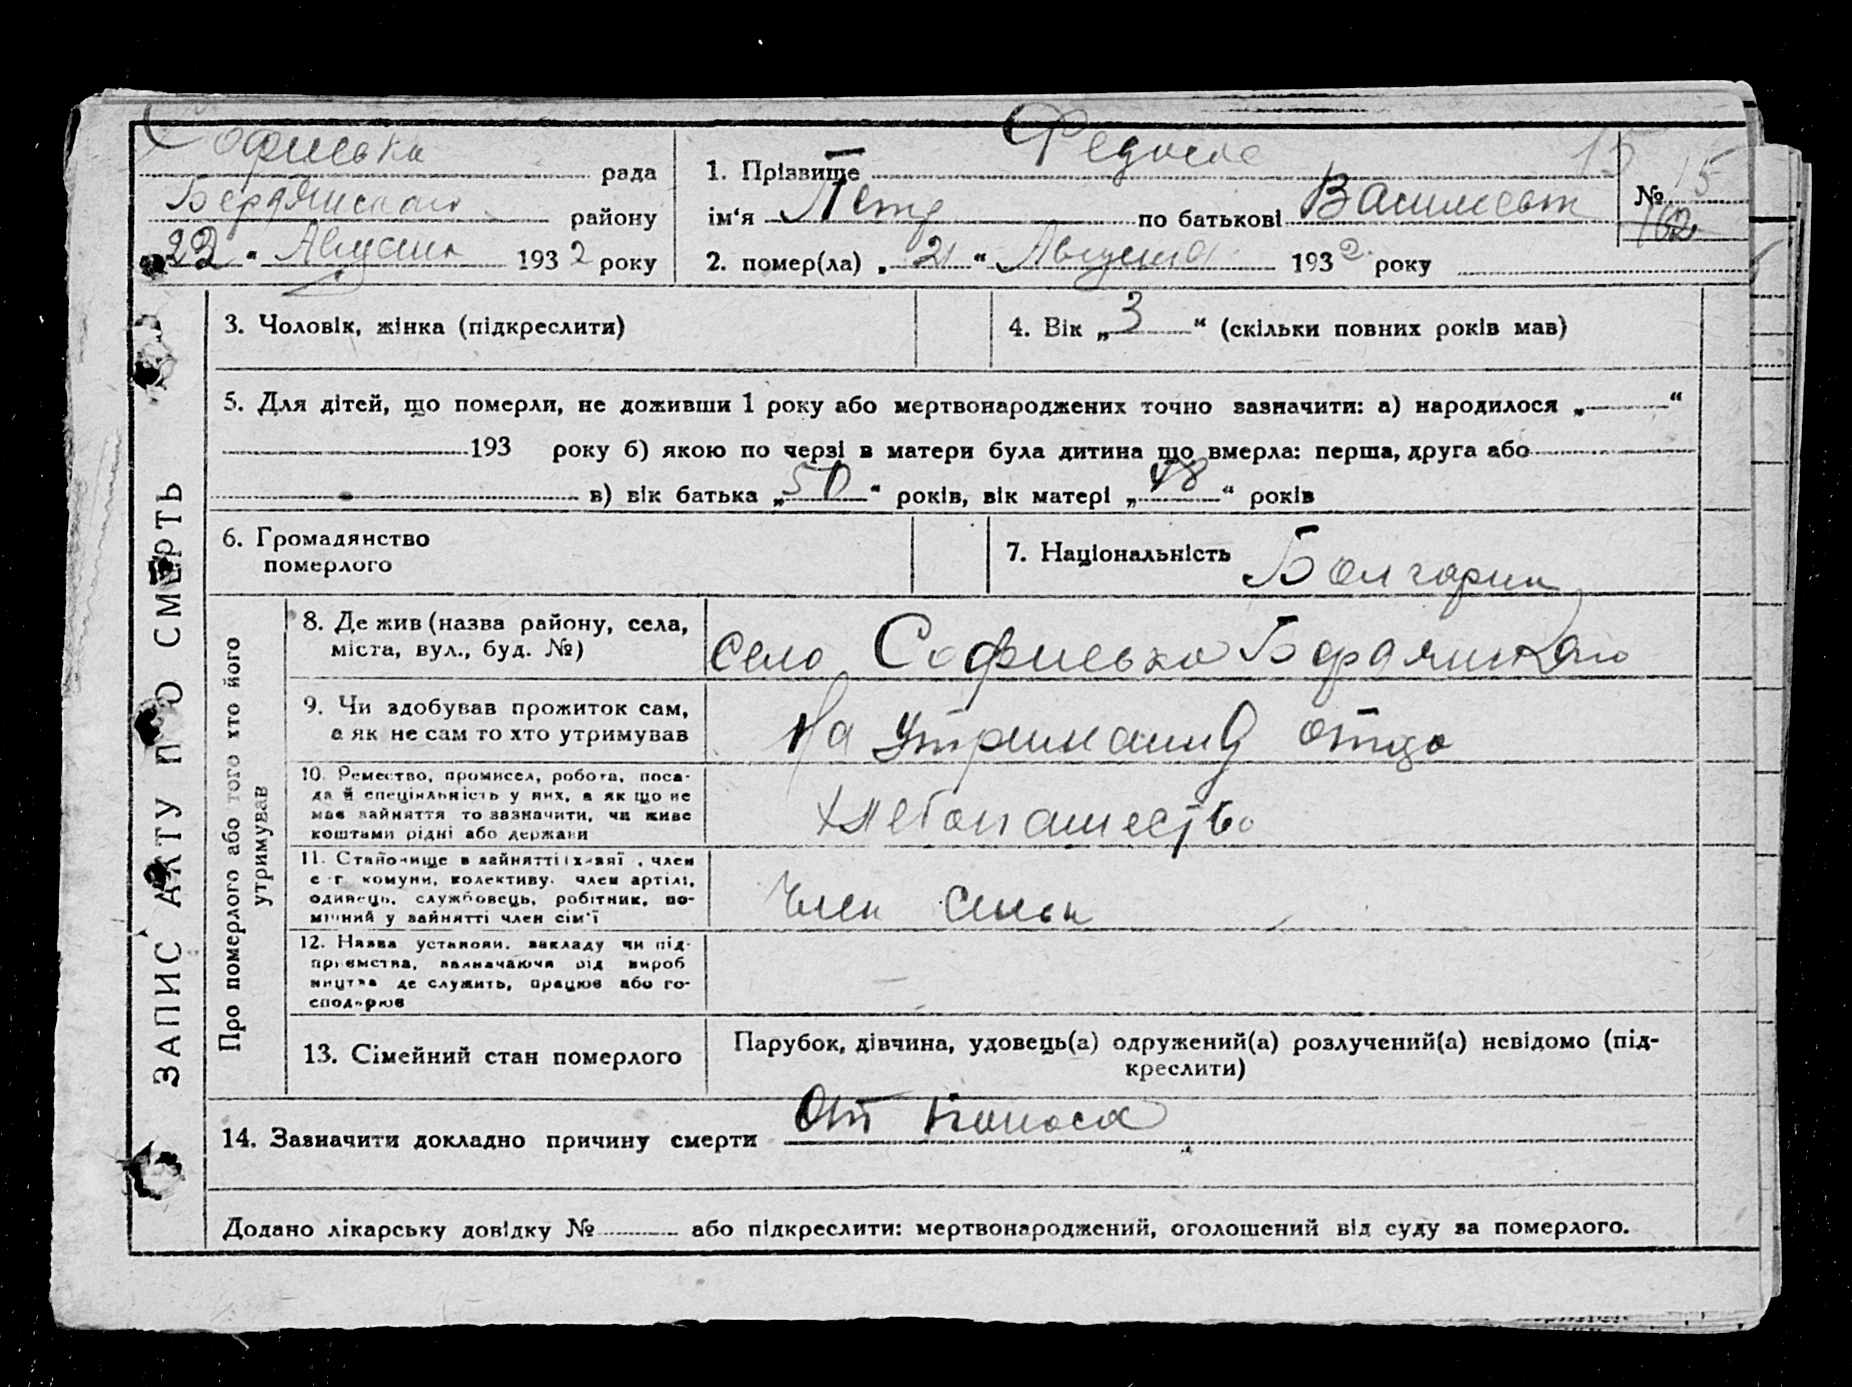 Софиевка рада
Бердянского району
"22" Августа 1932 року
1. Прізвище
ім'я Петр по батькові Васильевич
2. помер(ла) "21" Августа 1932 року
15 15
№ 162
ЗАПИС АКТУ ПРО СМЕРТЬ
3. Чоловік, жінка (підкреслити)
4. Вік "3" (скільки повних років мав)
5. Для дітей, що померли, не доживши 1 року або мертвонароджених точно зазначити: а) народилося „ “
193 року б) якою по черзі в матери була дитина що вмерла: перша, друга або
в) вік батька „50“ років, вік матері „48“ років
6. Громадянство
померлого
7. Національність Болгарин
Про померлого або того хто його
утримував
8. Де жив (назва району, села,
міста, вул., буд. №)
село Софиевка Бердянского
9. Чи здобував прожиток сам,
а як не сам то хто утримував
На утримании отца
10. Ремество, промисел, робота, поса-
да й спеціяльність у них, а як що не
має зайняття то зазначити, чи живе
коштами рідні або держави
хлебопашество
11. Становище в зайнятті (хазяї, член
с.-г. комуни, колективу, член артілі,
одинець, службовець, робітник, по-
мічний у зайнятті член сім'ї
Член семьи
12. Назва установи, закладу чи під-
приємства, зазначаючи рід вироб
ництва де служить, працює або го-
сподарює
13. Сімейний стан померлого
Парубок, дівчина, удовець(а) одружений(а) розлучений(а) невідомо (під-
креслити)
14. Зазначити докладно причину смерти От поноса
Додано лікарську довідку № або підкреслити: мертвонароджений, оголошений від суду за померлого.